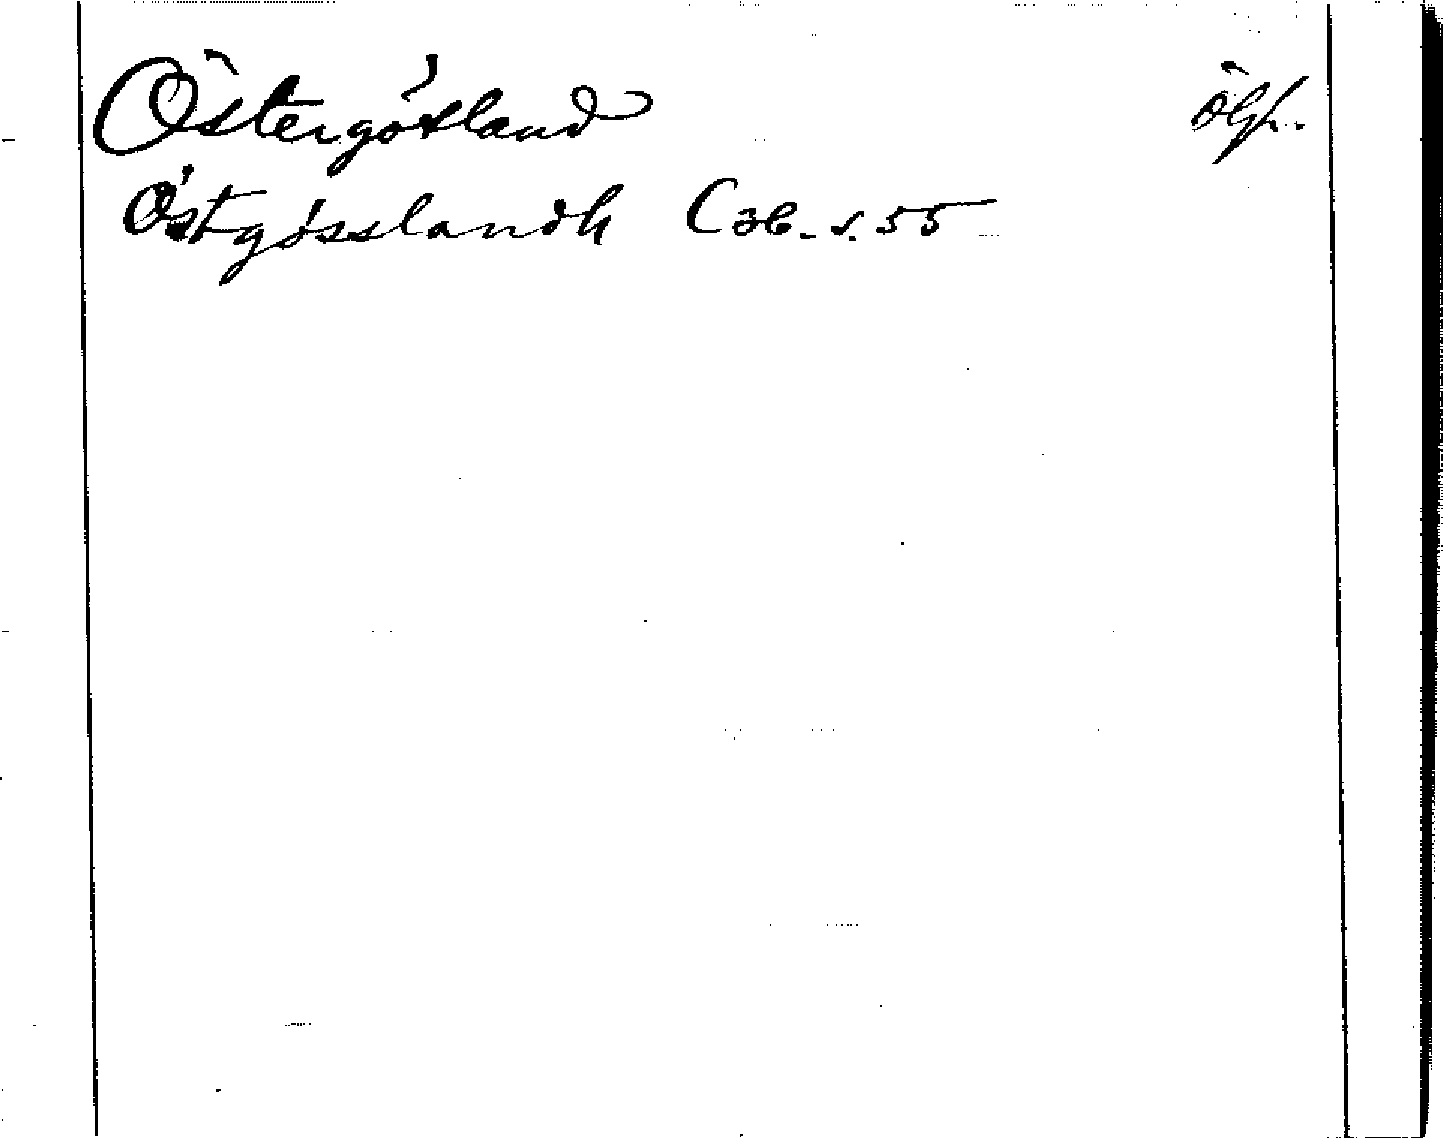 Östergötland Ölfr.
Östgösslandh C 36. s. 55